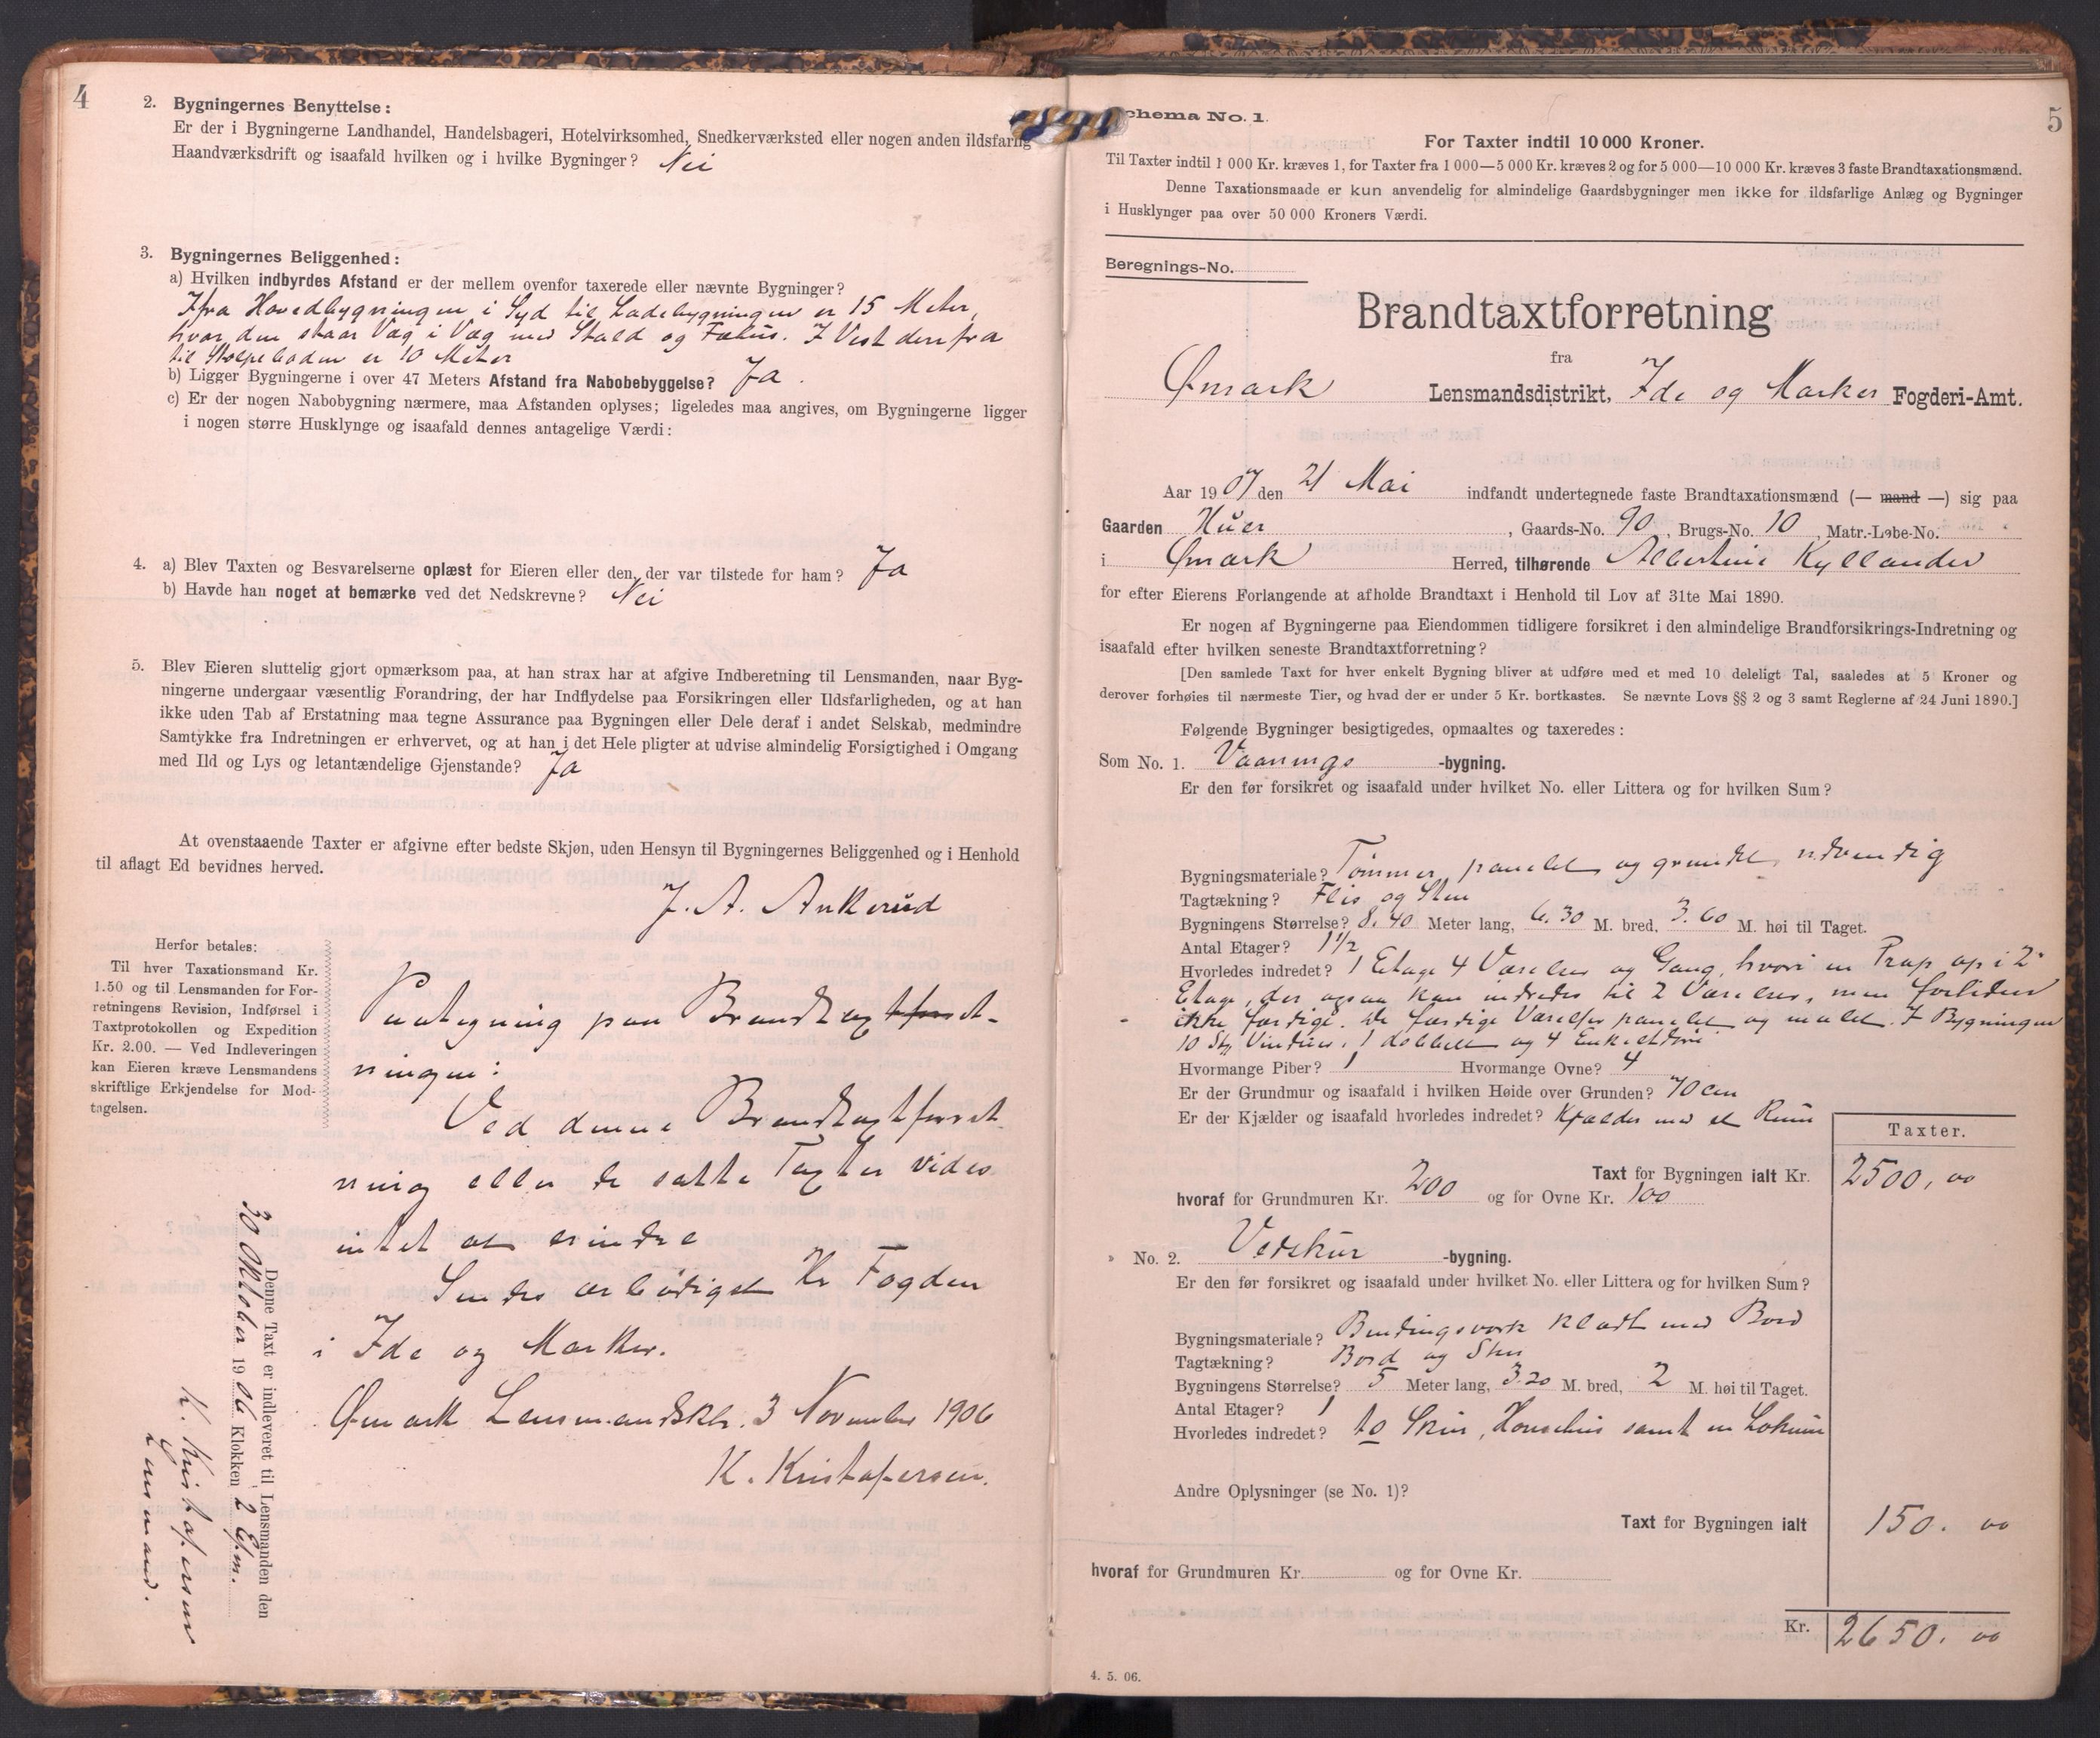 4
2. Bygningernes Benyttelse:
Er der i Bygningerne Landhandel, Handelsbageri, Hotelvirksomhed, Snedkerværksted eller nogen anden ildsfarlig
Haandværksdrift og isaafald hvilken og i hvilke Bygninger? Nei
3. Bygningernes Beliggenhed:
a) Hvilken indbyrdes Afstand er der mellem ovenfor taxerede eller nævnte Bygninger?
Ifra Hovedbygningen i Syd til Ladebygningen er 15 Meter,
hvor den staar Væg i Væg med Stald og Fæhus. I Vest derfra
til Stolpeboden er 10 Meter
b) Ligger Bygningerne i over 47 Meters Afstand fra Nabobebyggelse? Ja.
c) Er der nogen Nabobygning nærmere, maa Afstanden oplyses; ligeledes maa angives, om Bygningerne ligger
i nogen større Husklynge og isaafald dennes antagelige Værdi:
4. a) Blev Taxten og Besvarelserne oplæst for Eieren eller den, der var tilstede for ham? Ja
b) Havde han noget at bemærke ved det Nedskrevne? Nei
5. Blev Eieren sluttelig gjort opmærksom paa, at han strax har at afgive Indberetning til Lensmanden, naar Byg-
ningerne undergaar væsentlig Forandring, der har Indflydelse paa Forsikringen eller Ildsfarligheden, og at han
ikke uden Tab af Erstatning maa tegne Assurance paa Bygningen eller Dele deraf i andet Selskab, medmindre
Samtykke fra Indretningen er erhvervet, og at han i det Hele pligter at udvise almindelig Forsigtighed i Omgang
med Ild og Lys og letantændelige Gjenstande? Ja
At ovenstaaende Taxter er afgivne efter bedste Skjøn, uden Hensyn til Bygningernes Beliggenhed og i Henhold
til aflagt Ed bevidnes herved.
J. A. Ankerud
Herfor betales:
Til hver Taxationsmand Kr.
1.50 og til Lensmanden for For-
retningens Revision, Indførsel i
Taxtprotokollen og Expedition
Kr. 2.00. — Ved Indleveringen
kan Eieren kræve Lensmandens
skriftlige Erkjendelse for Mod-
tagelsen.
Paategning paa Brandtaxtforret-
ningen:
Ved denne Brandtaxtforret-
ning eller de satte Taxter vides
intet at erindre
Sendes ærbødigst Hr Fogden
i Ide og Marker.
Ømark Lensmandsktr. 3 November 1906
K. Kristofersen.
Denne Taxt er indleveret til Lensmanden den
30 Oktober 1906 Klokken 2 Efm.
K. Kristofersen
Lensmand.
5
chema No. 1.
For Taxter indtil 10 000 Kroner.
Til Taxter indtil 1 000 Kr. kræves 1, for Taxter fra 1 000—5 000 Kr. kræves 2 og for 5 000—10 000 Kr. kræves 3 faste Brandtaxationsmænd.
Denne Taxationsmaade er kun anvendelig for almindelige Gaardsbygninger men ikke for ildsfarlige Anlæg og Bygninger
i Husklynger paa over 50 000 Kroners Værdi.
Beregnings-No.
Brandtaxtforretning
fra
Ømark Lensmandsdistrikt, Ide og Marker Fogderi-Amt.
Aar 1907 den 21 Mai indfandt undertegnede faste Brandtaxationsmænd (— mand —) sig paa
Gaarden Huer, Gaards-No. 90, Brugs-No. 10, Matr.-Løbe-No.
i Ømark Herred, tilhørende Albertine Kyllander
for efter Eierens Forlangende at afholde Brandtaxt i Henhold til Lov af 31te Mai 1890.
Er nogen af Bygningerne paa Eiendommen tidligere forsikret i den almindelige Brandforsikrings-Indretning og
isaafald efter hvilken seneste Brandtaxtforretning?
[Den samlede Taxt for hver enkelt Bygning bliver at udføre med et med 10 deleligt Tal, saaledes at 5 Kroner og
derover forhøies til nærmeste Tier, og hvad der er under 5 Kr. bortkastes. Se nævnte Lovs §§ 2 og 3 samt Reglerne af 24 Juni 1890.]
Følgende Bygninger besigtigedes, opmaaltes og taxeredes:
Som No. 1. Vaanings -bygning.
Er den før forsikret og isaafald under hvilket No. eller Littera og for hvilken Sum?
Bygningsmateriale? Tømmer, panelet og grundet udvendig
Tagtækning? Flis og Sten
Bygningens Størrelse? 8.40 Meter lang, 6.30 M. bred, 3.60 M. høi til Taget.
Antal Etager? 1 1/2
Hvorledes indredet? 1 Etage 4 Værelser og Gang, hvori en Trap op i 2
Etage, der ogsaa kan indredes til 2 Værelser, men fortiden
ikke færdige. De færdige Værelser panelet og malet. I Bygningen
10 Stk Vinduer, 1 dobbelt og 4 Enkeltdøre
Hvormange Piber? 1 Hvormange Ovne? 4
Er der Grundmur og isaafald i hvilken Høide over Grunden? 70 cm
Er der Kjælder og isaafald hvorledes indredet? Kjælder med et Rum
Taxter.
Taxt for Bygningen ialt Kr. 2500,00
hvoraf for Grundmuren Kr. 200 og for Ovne Kr. 100
» No. 2. Vedskur -bygning.
Er den før forsikret og isaafald under hvilket No. eller Littera og for hvilken Sum?
Bygningsmateriale? Bindingsværk klædt med Bord
Tagtækning? Bord og Sten
Bygningens Størrelse? 5 Meter lang, 3.20 M. bred, 2 M. høi til Taget.
Antal Etager? 1
Hvorledes indredet? to Skur, Hønsehus samt en Lokum
Andre Oplysninger (se No. 1)?
Taxt for Bygningen ialt 150.00
hvoraf for Grundmuren Kr. og for Ovne Kr.
Kr. 2650.00
4. 5. 06.